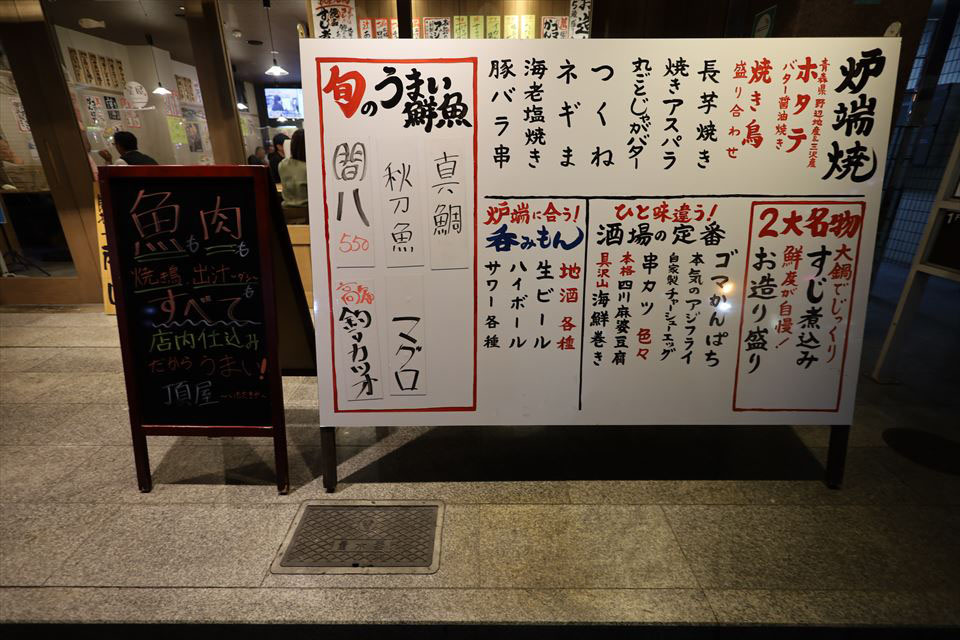 炉端焼
青森県野辺地産&三沢産
ホタテ
バター醤油焼き
焼き鳥
盛り合わせ
長芋焼き
焼きアスパラ
丸ごとじゃがバター
つくね
ネギま
海老塩焼き
豚バラ串
2大名物
大鍋でじっくり
すじ煮込み
鮮度が自慢!
お造り盛り
ひと味違う!
酒場の定番
ゴマかんぱち
本気のアジフライ
自家製チャーシューエッグ
串カツ 色々
本格四川麻婆豆腐
具沢山海鮮巻き
炉端に合う!
呑みもん
地酒各種
生ビール
ハイボール
サワー各種
旬のうまい鮮魚
真鯛
秋刀魚
間八
550
マグロ
釣りカツオ
魚も肉も
焼き鳥、出汁
すべて
店内仕込み
だからうまい!
頂屋